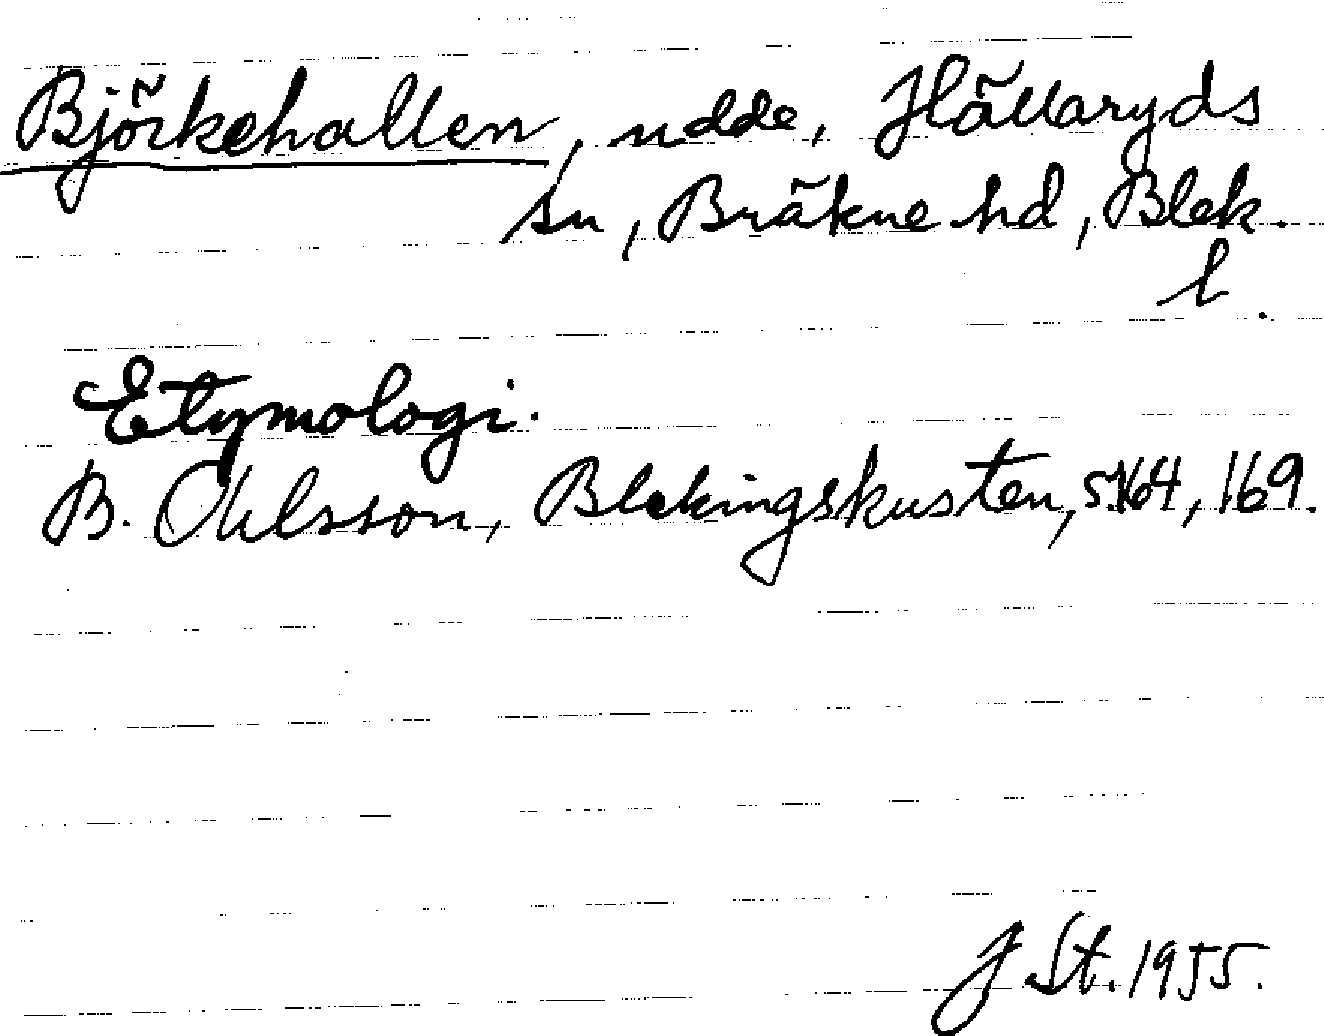 Björkehallen, udde, Hällaryds
sn, Bräkne hd, Blek.
l.
Etymologi.
B. Ohlsson, Blekingskusten, s. 164, 169.
J St. 1955.